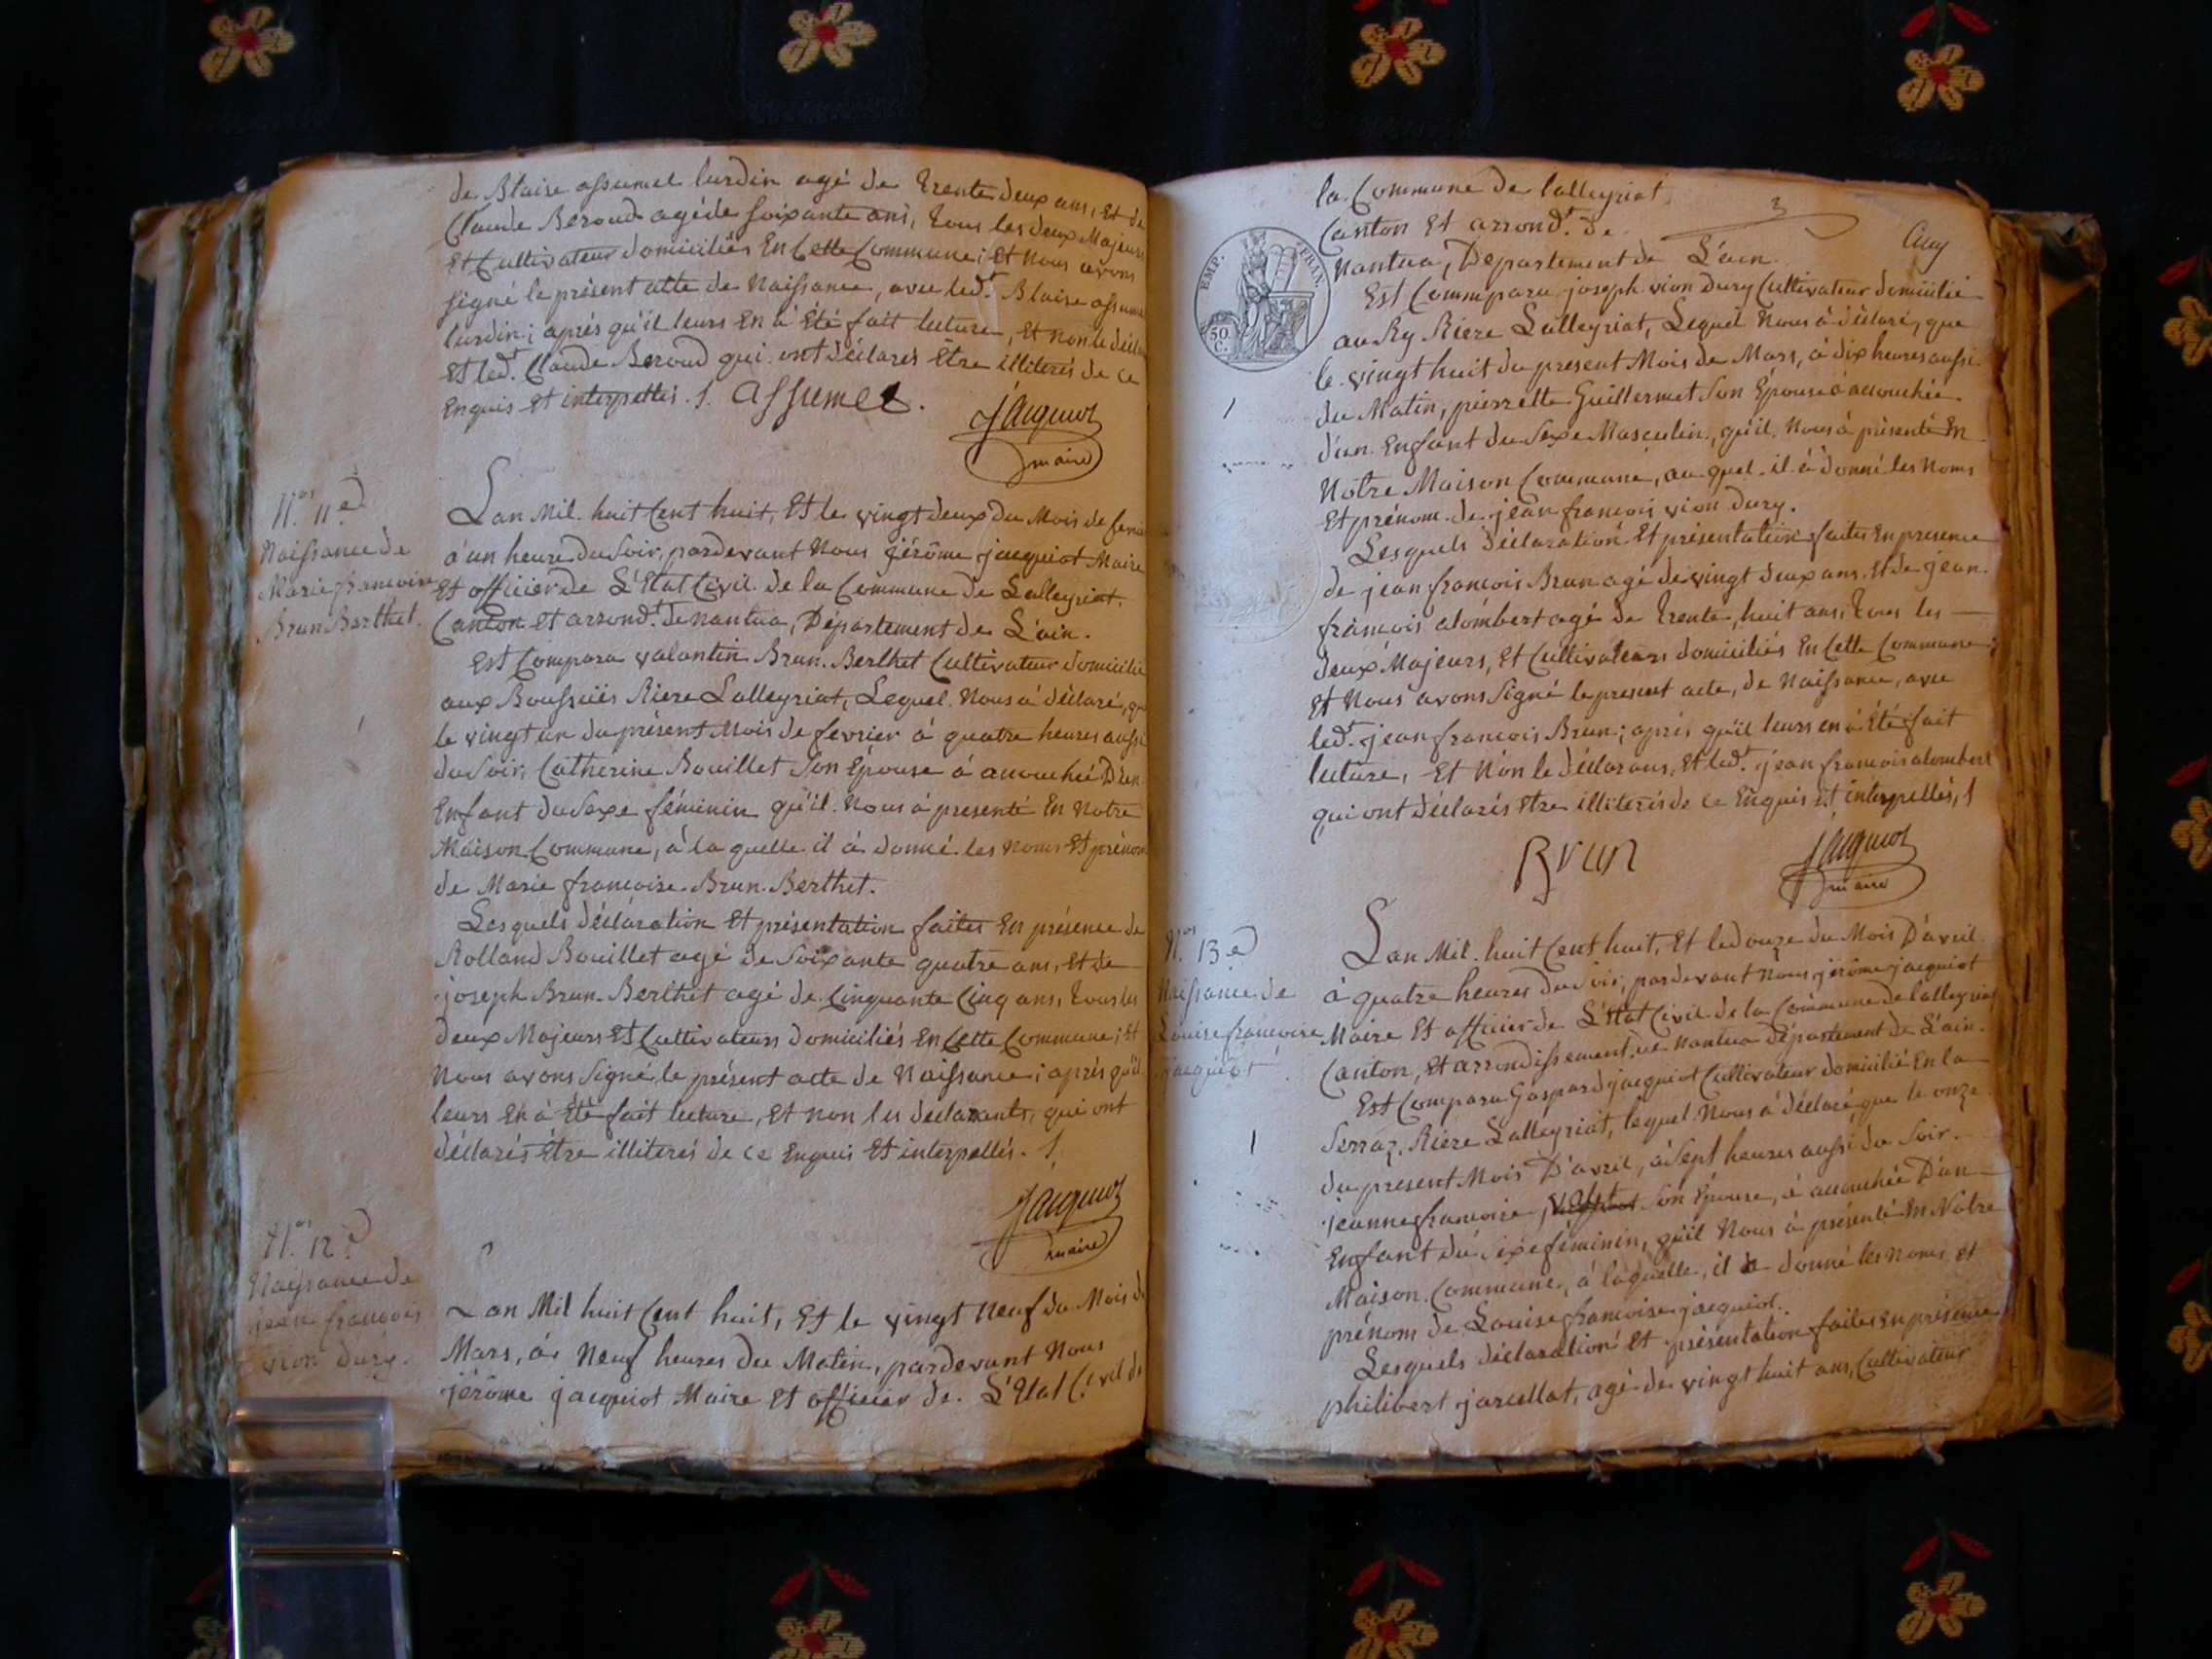 de Blaise assumel lurdin agé de trente deux ans, et de
Claude Beroud agé de soixante ans, tous les deux Majeurs
Et Cultivateur domiciliés En Cette Commune; Et nous avons
signé le présent atte de Naissance, avec led.t Blaise assumel
lurdin; aprés qu'il leurs En à été fait lecture, Et non le décla
Et led.t Claude Beroud qui ont déclarés Être illiterés de ce
Enquis Et interpellés. /. assumel.
jacquiot
maire
N.os 11.e
Naissance de
Marie francoise
Brun Berthet.
Lan Mil huit Cent huit, Et le vingt deux du Mois de fevr
à un heure du Soir, pardevant Nous jérôme jacquiot Maire
Et officier de L'Etat Civil de la Commune de Lalleyriat,
Canton et arrond.t de nantua, Département de L'ain.
Est Comparu valantin Brun-Berthet Cultivateur domicilié
aux Riere Lalleyriat, Lequel Nous à déclaré, que
le vingt un du présent Mois de fevrier à quatre heures aussi
du Soir, Catherine Bouillet Son Épouse à accouchée D'un
Enfant du Sexe féminin qu'il Nous à presenté En Notre
Maison Commune, à la quelle il à donné les Noms Et prénom
de Marie francoise Brun-Berthet.
Lesquels déclaration Et présentation faites En présence de
Rolland Bouillet agé de Soixante quatre ans, Et de
joseph Brun-Berthet agé de Cinquante Cinq ans, tous les
deux Majeurs Et Cultivateurs domiciliés En Cette Commune; Et
Nous avons Signé le présent acte de Naissance; aprés qu'il
leurs En à Été fait lecture, Et non les declarants, qui ont
déclarés Être illiterés de ce Enquis Et interpellés. /.
jacquiot
maire
N.os 12.e
Naissance de
jean françois
vion dury.
Lan Mil huit Cent huit, Et le vingt Neuf du Mois de
Mars, à Neuf heures du Matin, pardevant Nous
jérôme jacquiot Maire Et officier de L'Etat Civil de
la Commune de lalleyriat
Canton Et arrond.t de
Nantua, Département de L'ain.
EMP. FRAN.
50 C.
Est Commparu joseph vion dury Cultivateur domicilié
au Ry Riere Lalleyriat, Lequel Nous à déclaré, que
le vingt huit du present Mois de Mars, à dix heures aussi
du Matin, pierrette Guillermet Son Épouse à accouchée
d'un Enfant du Sexe Masculin, qu'il Nous à présenté En
Notre Maison Commune, au quel il à donné les Noms
Et prénom de jean francois vion dury.
Lesquels déclaration Et présentation faites En presence
de jean francois Brun agé de vingt deux ans, Et de jean
françois alombert agé de trente huit ans, tous les
deux Majeurs, Et Cultivateurs domiciliés En Cette Commune;
Et Nous avons Signé le present acte, de Naissance, avec
led.t jean francois Brun; aprés qu'il leurs en à Été fait
lecture, Et Non le déclarans, Et led.t jean francois alombert
qui ont déclarés Etre illiterés de ce Enquis Et interpellés, /
Brun
jacquiot
maire
N.os 13.e
Naissance de
Louise francoise
jacquiot
Lan Mil huit Cent huit, Et le douze du Mois D'avril
à quatre heures du Soir, pardevant Nous jérôme jacquiot
Maire Et officier de L'Etat Civil de la Commune de lalleyriat
Canton, Et arrondissement de Nantua Département de L'ain.
Est Comparu Gaspard jacquiot Cultivateur domicilié En la
Serraz, Riere Lalleyriat, lequel Nous à déclaré que le onze
du present Mois D'avril, à Sept heures aussi du Soir
jeanne francoise Son Épouse, à accouchée D'un
Enfant du Sexe féminin, qu'il Nous à présenté En Notre
Maison Commune, à laquelle, il à donné les Noms, Et
prénom de Louise francoise jacquiot.
Lesquels déclaration Et présentation faites En présence
philibert jarcellat, agé de vingt huit ans, Cultivateur